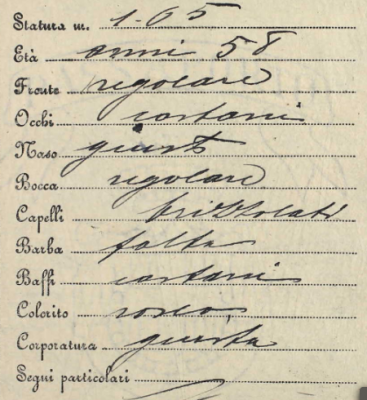 Statura m. 1.65
Età anni 58
Fronte regolare
Occhi castani
Naso giusto
Bocca regolare
Capelli brizzolati
Barba folta
Baffi castani
Colorito roseo
Corporatura giusta
Segni particolari